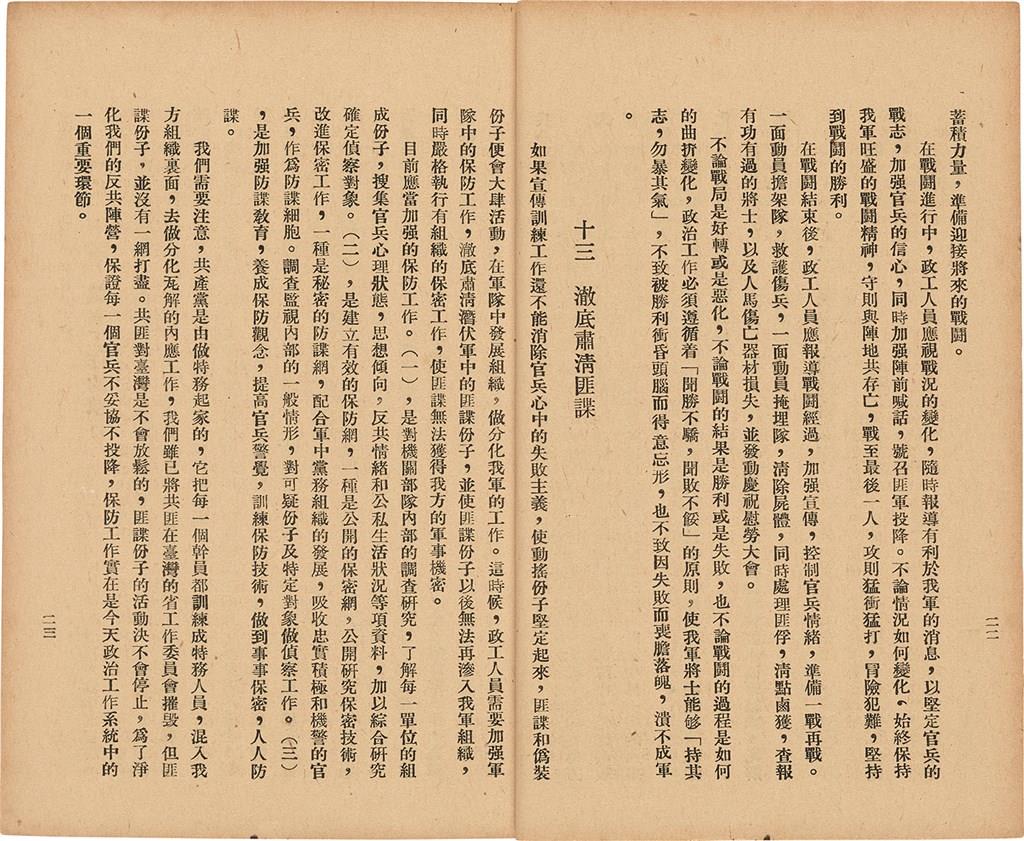 蓄積力量，準備迎接將來的戰鬪。
在戰鬪進行中，政工人員應視戰況的變化，隨時報導有利於我軍的消息，以堅定官兵的
戰志，加强官兵的信心，同時加强陣前喊話，號召匪軍投降。不論情況如何變化，始終保持
我軍旺盛的戰鬪精神，守則與陣地共存亡，戰至最後一人，攻則猛衝猛打，冒險犯難，堅持
到戰鬪的勝利。
在戰鬪結束後，政工人員應報導戰鬪經過，加强宣傳，控制官兵情緒，準備一戰再戰。
一面動員擔架隊，救護傷兵，一面動員掩埋隊，淸除屍體，同時處理匪俘，淸點鹵獲，查報
有功有過的將士，以及人馬傷亡器材損失，並發動慶祝慰勞大會。
不論戰局是好轉或是惡化，不論戰鬪的結果是勝利或是失敗，也不論戰鬪的過程是如何
的曲折變化，政治工作必須遵循着「聞勝不驕，聞敗不餒」的原則，使我軍將士能够「持其
志，勿暴其氣」，不致被勝利衝昏頭腦而得意忘形，也不致因失敗而喪膽落魄，潰不成軍
。
十三　澈底肅淸匪諜
如果宣傳訓練工作還不能消除官兵心中的失敗主義，使動搖份子堅定起來，匪諜和僞裝
二二
份子便會大肆活動，在軍隊中發展組織，做分化我軍的工作。這時候，政工人員需要加强軍
隊中的保防工作，澈底肅淸潛伏軍中的匪諜份子，並使匪諜份子以後無法再滲入我軍組織，
同時嚴格執行有組織的保密工作，使匪諜無法獲得我方的軍事機密。
目前應當加强的保防工作。（一），是對機關部隊內部的調查研究，了解每一單位的組
成份子，搜集官兵心理狀態，思想傾向，反共情緒和公私生活狀況等項資料，加以綜合研究
確定偵察對象。（二），是建立有效的保防網，一種是公開的保密網，公開研究保密技術，
改進保密工作，一種是秘密的防諜網，配合軍中黨務組織的發展，吸收忠實積極和機警的官
兵，作爲防諜細胞。調查監視內部的一般情形，對可疑份子及特定對象做偵察工作。（三）
，是加强防諜敎育，養成保防觀念，提高官兵警覺，訓練保防技術，做到事事保密，人人防
諜。
我們需要注意，共產黨是由做特務起家的，它把每一個幹員都訓練成特務人員，混入我
方組織裏面，去做分化瓦解的內應工作，我們雖已將共匪在臺灣的省工作委員會摧毀，但匪
諜份子，並沒有一網打盡。共匪對臺灣是不會放鬆的，匪諜份子的活動決不會停止，爲了淨
化我們的反共陣營，保證每一個官兵不妥協不投降，保防工作實在是今天政治工作系統中的
一個重要環節。
二三